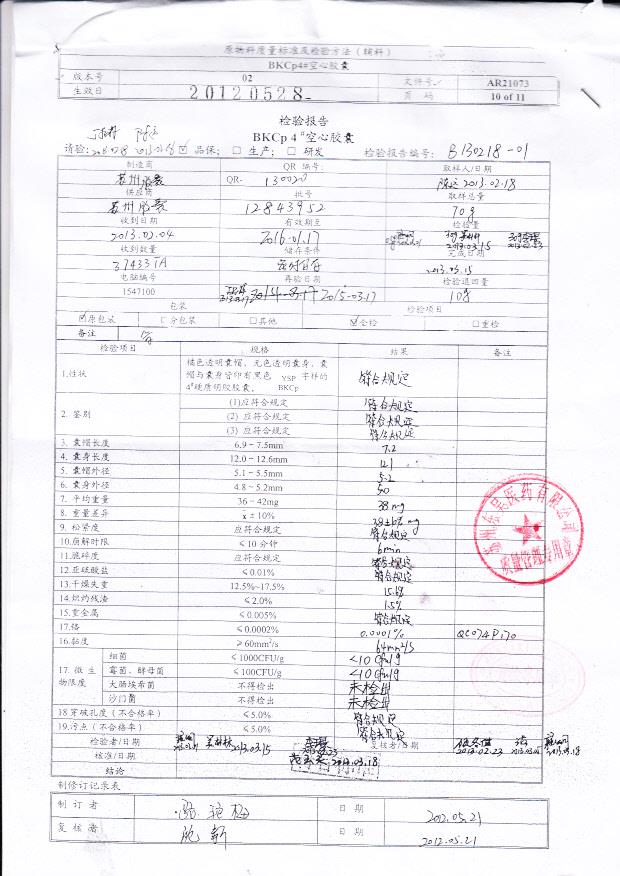 原物料质量标准及检验方法（辅料）
BKCp4#空心胶囊
版本号 02 文件号 AR21073
生效日 20120528 页码 10 of 11
检验报告
BKCp 4#空心胶囊
请验: ☑ 品保; □ 生产; □ 研发 检验报告编号: B130218-01
制造商 QR 编号: 取样人/日期
苏州胶囊 QR- 130020 2013.02.18
供应商 批号 取样总量
苏州胶囊 12843952 70g
收到日期 有效期至 检验量
2013.02.04 2016.01.17
收到数量 储存条件 完成日期
2013.03.15
电脑编号 再验日期 检验退回量
1547100 2015.03.17 10g
包装 检验项目
☑原包装 □分包装 □其他 ☑全检 □重检
备注
检验项目 规格 结果 备注
1.性状 橘色透明囊帽，无色透明囊身，囊帽与囊身皆印有黑色 YSP BKCp 字样的4#硬质明胶胶囊。 符合规定
2. 鉴别 (1)应符合规定 符合规定
(2) 应符合规定 符合规定
(3) 应符合规定 符合规定
3. 囊帽长度 6.9－7.5mm 7.2
4. 囊身长度 12.0－12.6mm 12.1
5. 囊帽外径 5.1－5.5mm 5.2
6. 囊身外径 4.8－5.2mm 5.0
7. 平均重量 36－42mg 38mg
8. 重量差异 x̄±10%
9. 松紧度 应符合规定 符合规定
10.崩解时限 ≤10 分钟 6min
11.脆碎度 应符合规定 符合规定
12.亚硫酸盐 ≤0.01% 符合规定
13.干燥失重 12.5%~17.5% 15.6%
14.炽灼残渣 ≤2.0% 1.5%
15.重金属 ≤0.005% 符合规定
17.铬 ≤0.0002% 0.0001% QC074P170
16.黏度 ≥60mm²/s 64mm²/s
17. 微生物限度 细菌 ≤1000CFU/g <10cfu/g
霉菌、酵母菌 ≤100CFU/g <10cfu/g
大肠埃希菌 不得检出 未检出
沙门菌 不得检出 未检出
18穿破孔度（不合格率） ≤5.0% 符合规定
19.污点（不合格率） ≤5.0% 符合规定
检验者/日期 2013.03.15 复核者/日期 2013.02.23
核准/日期 2013.03.18
结论
制修订记录表
制订者 日期 2012.05.21
复核者 日期 2012.05.21
苏州东吴医药有限公司
质量管理专用章